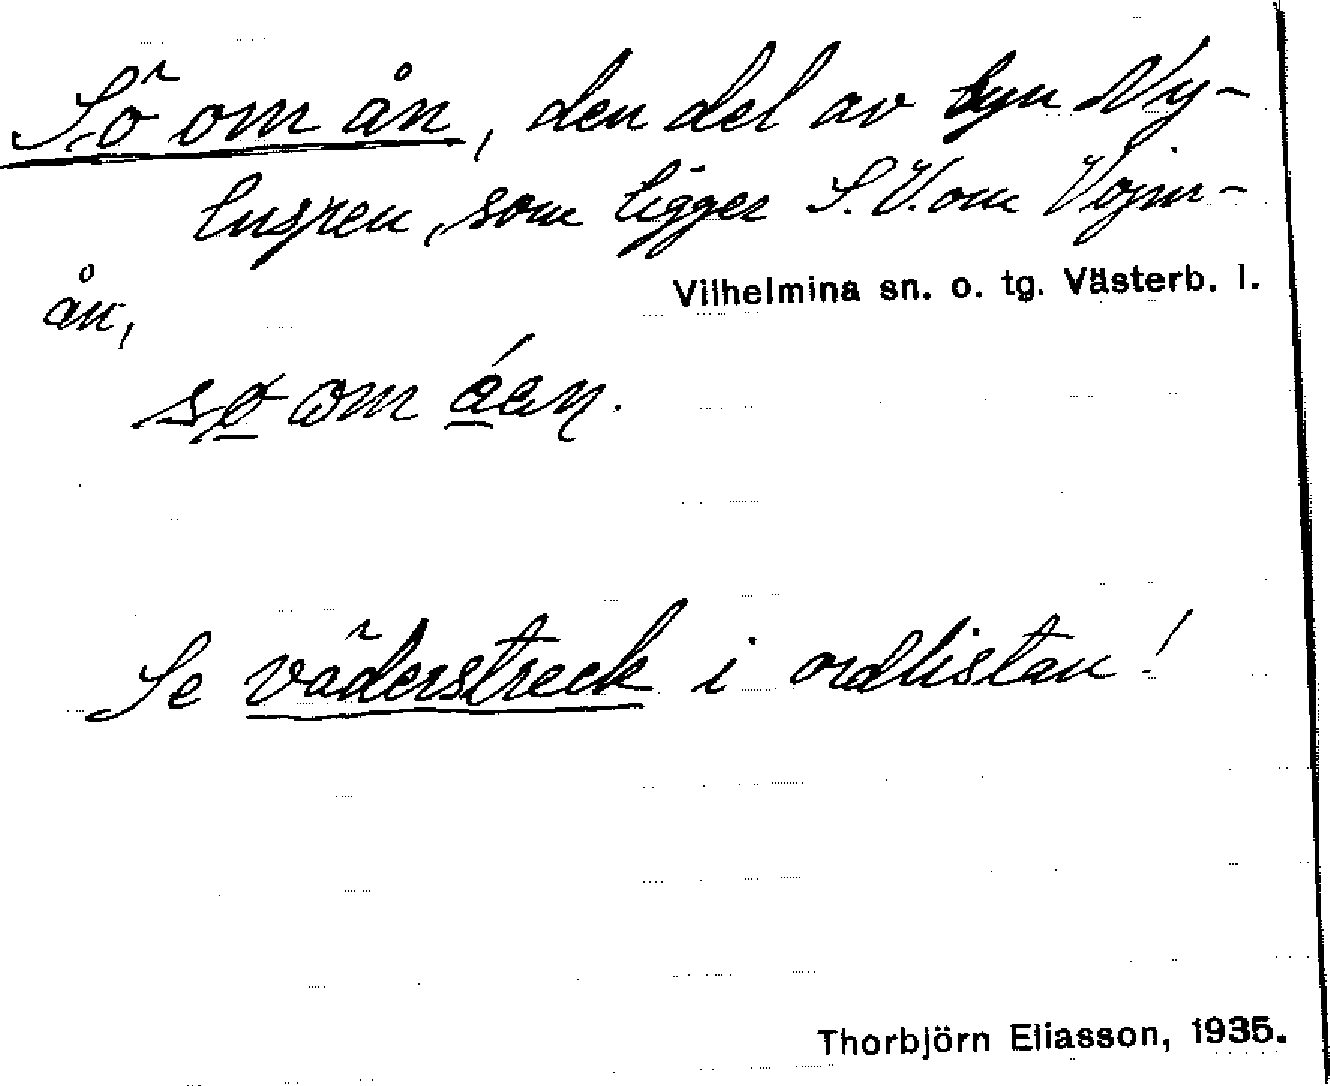 Sö om ån, den del av byn Ny-
luspen, som ligger S.V. om Vojm-
ån,
Vilhelmina sn. o. tg. Västerb. l.
sø om
Se väderstreck i ordlistan!
Thorbjörn Eliasson, 1935.